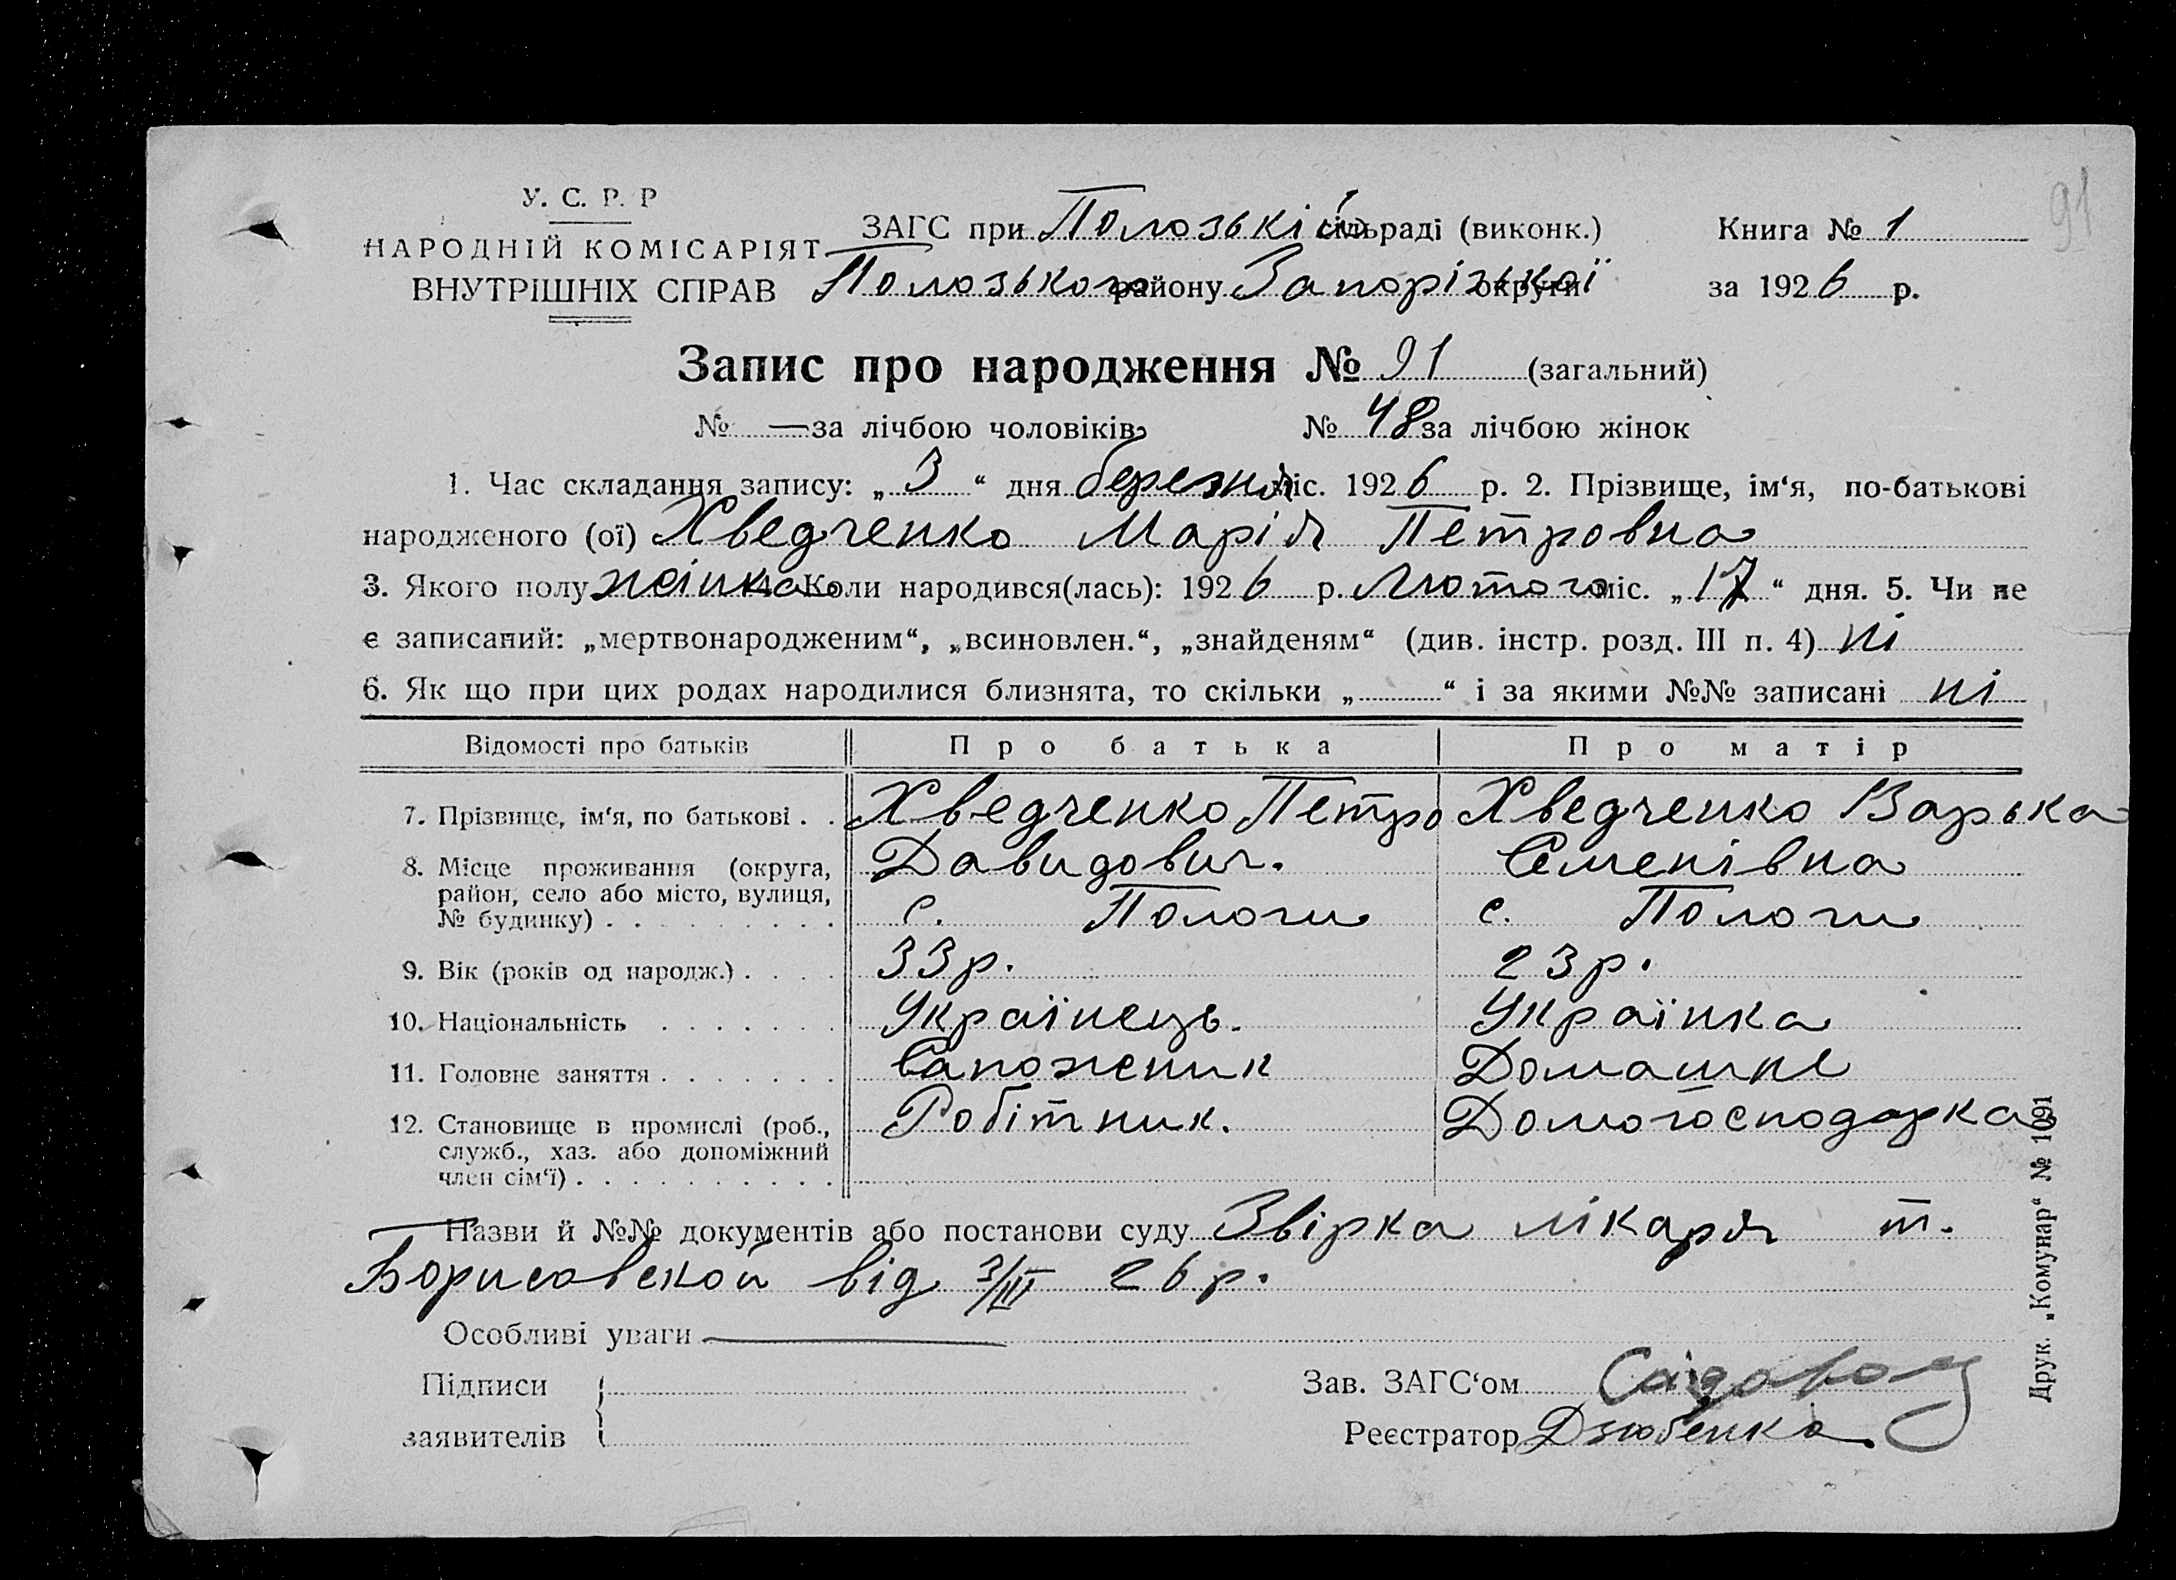 91
У. С. Р. Р
НАРОДНІЙ КОМІСАРІЯТ
ВНУТРІШНІХ СПРАВ
ЗАГС при Полозькій сільраді (виконк.) Книга № 1
Полозького району Запорізької округи за 1926 р.
Запис про народження № 91 (загальний)
№ — за лічбою чоловіків № 48 за лічбою жінок
1. Час складання запису: „ 3 “ дня березня міс. 1926 р. 2. Прізвище, ім‘я, по-батькові
народженого (ої) Хведченко Марія Петровна
3. Якого полу жінка 4. Коли народився(лась): 1926 р. Лютого міс. „ 17 “ дня. 5. Чи не
є записаний: „мертвонародженим“, „всиновлен.“, „знайденям“ (див. інстр. розд. III п. 4) ні
6. Як що при цих родах народилися близнята, то скільки „ “ і за якими №№ записані ні
Відомості про батьків Про батька Про матір
7. Прізвище, ім‘я, по батькові . . Хведченко Петро Хведченко Варька
Давидович. Семенівна
8. Місце проживання (округа,
район, село або місто, вулиця,
№ будинку) . . . . . . . . . с. Пологи с. Пологи
9. Вік (років од народж.) . . . . 33 р. 23 р.
10. Національність . . . . . . . Українець. Українка
11. Головне заняття . . . . . . . Сапожник Домашнє
12. Становище в промислі (роб., Робітник. Домогосподарка
служб., хаз. або допоміжний
член сім‘ї) . . . . . . . . . .
Назви й №№ документів або постанови суду Звірка лікаря т.
Борисовской від 3/III 26 р.
Особливі уваги
Підписи
заявителів
Зав. ЗАГС‘ом
Реєстратор Дзюбенко
Друк. „Комунар“ № 1091